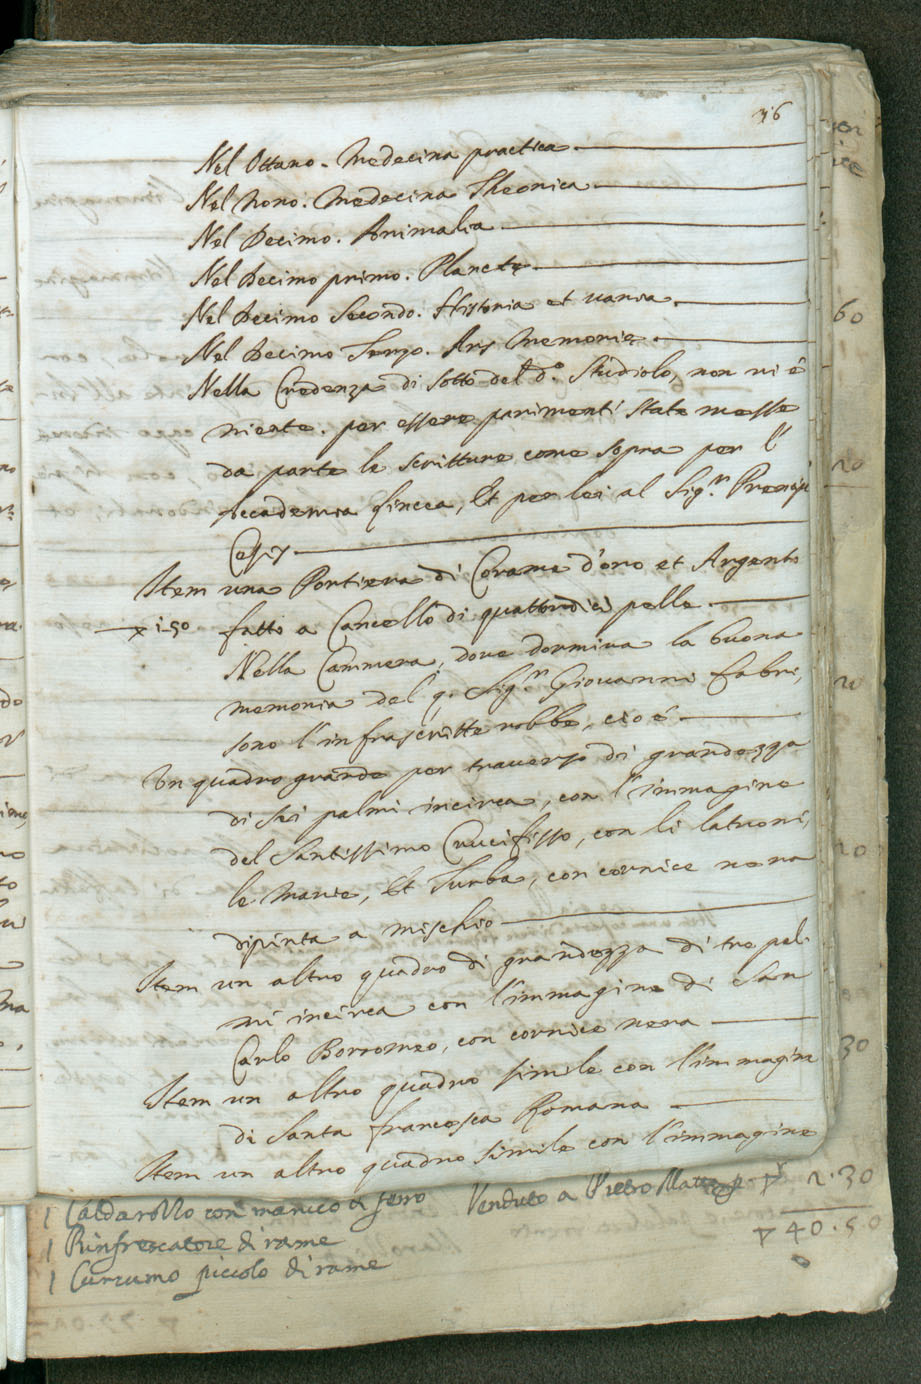 36
Nel Ottavo. Medecina practica.
Nel Nono. Medecina Theorica
Nel Decimo. Animalia
Nel Decimo primo. Planetę
Nel Decimo Secondo. Historia et varia.
Nel Decimo Terzo. Ars Memorię.
Nella Credenza di sotto del d.º Studiolo, non vi è
niente. per essere parimenti state messe
da parte le scritture come sopra per l'
Accademia Lincea, Et per lei al Sig.r Prencipe
Cesis
Item una Portiera di Corame d'oro et Argento
1:50 fatto a Cancello di quattordici pelle.
Nella Cammera, dove dormiva la buona
memoria del q. Sig.r Giovanni Fabri,
sono l'infrascritte robbe, cio é
Un quadro grande per traverso di grandezza
di sei palmi incirca, con l'immagine
del Santissimo Crucifisso, con li latroni,
le Marie, Et Turba, con cornice nera
dipinta a mischio
Item un altro quadro di grandezza di tre pal-
mi incirca con l'immagine di San
Carlo Borromeo, con cornice nera
Item un altro quadro simile con l'immagine
di Santa Francesca Romana
Item un altro quadro simile con l'immagine
60
20
20
30
1 Caldarozzo con manico di ferro Venduto a Pietro 2.30
1 Rinfrescatore di rame 40.50
1 Cuccumo piccolo di rame